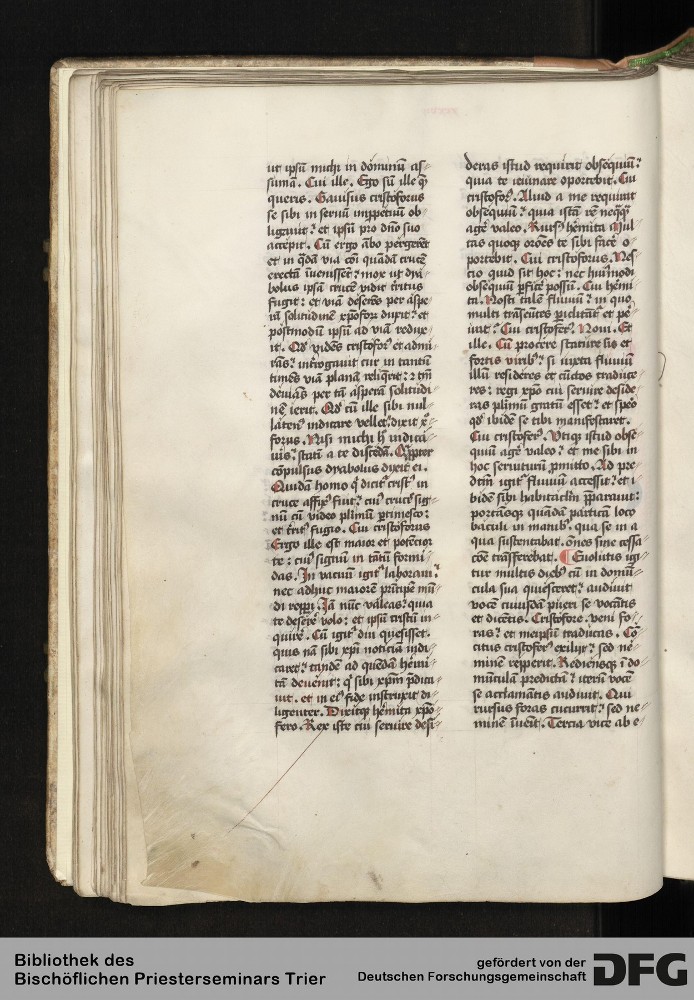 ut ipsū michi in dominū as-
sumā. Cui ille. Ego sū ille q̄
queris. Gavisus cristoforus
se sibi in servū inppetuū ob-
ligavit: et ipsū pro dño suo
accepit. Cū ergo ābo pergerēt
et in q̄dā via cōi quādā crucē
erectā īvenisset: mox ut dya-
bolus ipsā crucē vidit t̄ritus
fugit: et viā deserēs per aspe-
rā solitudinē xp̄oforū duxit: et
postmodū ipsū ad viā redux-
it. Qd̓ vidēs cristofor᷒ et admi-
rās: int̓rogavit cur in tantū
timēs viā planā reliq̄rit: ⁊ tm̄
devians per tā asperā solitudi-
nē ierit. Qd̓ cū ille sibi nul-
latēn᷒ indicare vellet: dixit xp̄-
forus. Nisi michi h̄ indica-
vis: statī a te discedā. Qp̄pter
cōpulsus dyabolus dixit ei.
Quidā homo q̄ dicit᷒ crist᷒ in
cruce affix᷒ fuit: cui᷒ cruc᷒ sig-
nū cū video plimū ꝑtimesco:
et t̓rit᷒ fugio. Cui cristoforus
Ergo ille est maior et potencior
te: cui᷒ signū in tātū formi-
das. In vacuū igit᷒ laboravi:
nec adhuc maiorē prīcipē mū-
di repperi. Iā nūc valeas: quia
te deserē volo: et ipsū cristū in-
quirē. Cū igit᷒ diu quesisset
quis nā sibi xpī noticiā indi-
caret: tandē ad quēdā hēmi-
tā devenit: q̄ sibi xpm̄ p̄dica-
vit. et in ei᷒ fide instruxit di-
ligenter. Dixitqȝ hēmita xp̄o-
fero. Rex iste cui servire desi-
deras istud requirit obsequiū:
quia te ieiunare oportebit. Cui
cristofor᷒. Aliud a me requirat
obsequiū: quia istā rē neq̄q̄
agē valeo. Rursū hēmita Mul-
tas quoqȝ orōes te sibi facē o-
portebit. Cui cristoforus. Nes-
cio quid sit hoc: nec hui᷒modi
obsequiū ꝑficē possū. Cui hēmi-
ta. Nosti talē fluviū: in quo
multi trāseūtes ꝑiclitāt᷒ et pe-
reūt: Cui cristofor᷒. Novi. Et
ille. Cū procere stature sis et
fortis virib᷒: si iuxta fluviū
illū resideres et cūctos traduce-
res: regi xpō cui servire deside-
ras plimū gratū esset: et spero
qd̓ ibidē se tibi manifestaret.
Cui cristofer᷒. Utiqȝ istud obse-
quiū agē valeo: et me sibi in
hoc serviturū ꝑmitto. Ad pre-
dictū igit᷒ fluviū accessit: et i-
bidē sibi habitaclm̄ p̄paravit:
portāsqȝ quādā particā loco
baculi in manib᷒. qua se in a-
qua sustentabat. ōnes sine cessa-
cōe trāsferebat. ¶ Evolutis igi-
tur multis dieb᷒ cū in domū-
cula sua quiesceret: audivit
vocē cuiusdā pueri se vocātis
et dicētis. Cristofore. veni fo-
ras: et meipsū traducas. Cō-
citus cristofor᷒ exilijt: sed ne-
minē repperit. Rediensqȝ ī do-
mūculā predictā: iterū vocē
se acclamātis audivit. Qui
rursus foras cucurrit: sed ne-
minē īvēit. Tercia vice ab e-
Bibliothek des
Bischöflichen Priesterseminars Trier
gefördert von der
Deutschen Forschungsgemeinschaft
DFG